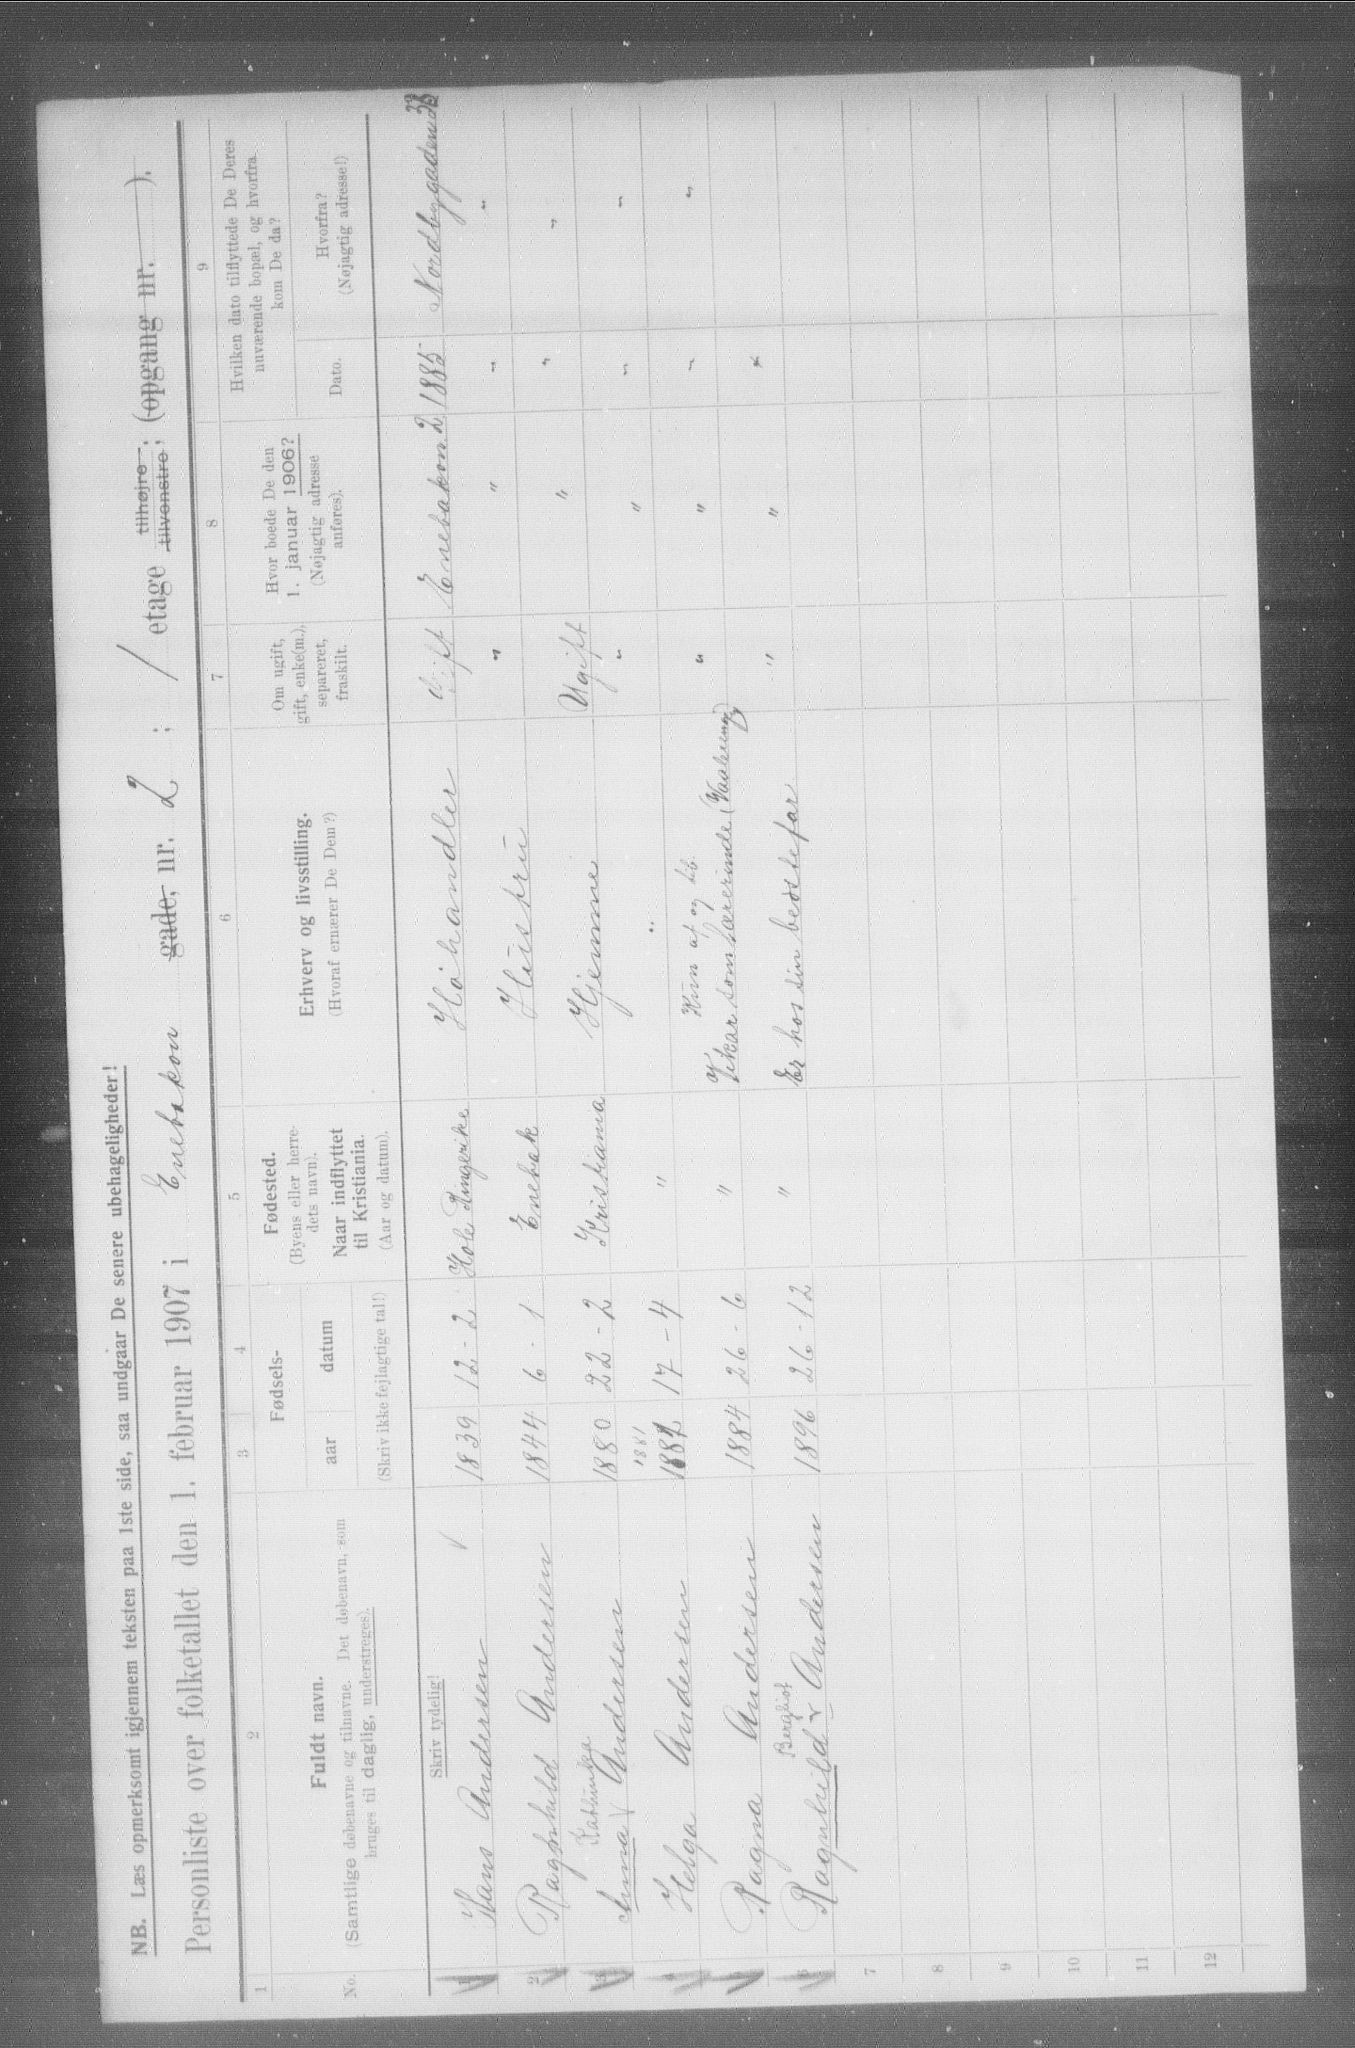 NB. Læs opmerksomt igjennem teksten paa 1ste side, saa undgaar De senere ubehageligheder!
Personliste over folketallet den 1. februar 1907 i Enebakon gade, nr. 2 ; 1 etage tilhøjre ; tilvenstre ; (opgang nr. ).
1 2 3 4 5 6 7 8 9
No.
Fuldt navn.
(Samtlige døbenavne og tilnavne. Det døbenavn, som
bruges til daglig, understreges).
Fødsels-
aar datum
(Skriv ikke fejlagtige tal!)
Fødested.
(Byens eller herre-
dets navn).
Naar indflyttet
til Kristiania.
(Aar og datum).
Erhverv og livsstilling.
(Hvoraf ernærer De Dem?)
Om ugift,
gift, enke(m.),
separeret,
fraskilt.
Hvor boede De den
1. januar 1906?
(Nøjagtig adresse
anføres).
Hvilken dato tilflyttede De Deres
nuværende bopæl, og hvorfra
kom De da?
Dato.
Hvorfra?
(Nøjagtig adresse!)
Skriv tydelig!
1 Hans Andersen 1839 12 - 2 Hole Ringerike Høhandler Gift Enebakon 2 1885 Nordbygaden 33
2 Ragnhild Andersen 1844 6 - 1 Enebak Hustru " " " "
Kathinka
3 Anna Andersen 1880 22 - 2 Kristiania Hjemme Ugift " " "
1881
4 Helga Andersen 1882 17 - 4 " " " " " "
Kun af og til
5 Ragna Andersen 1884 26 - 6 " Vikar som lærerinde (Vaalereng) " " " "
Bergliot
6 Ragnhild Andersen 1896 26 - 12 " Er hos sin bedstefar " " "
7
8
9
10
11
12